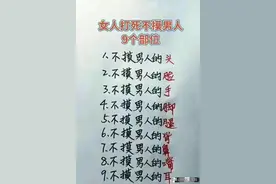 女人打死不摸男人
9个部位
1.不摸男人的头
2.不摸男人的脸
3.不摸男人的手
4.不摸男人的脚
5.不摸男人的腿
6.不摸男人的背
7.不摸男人的鼻
8.不摸男人的嘴
9.不摸男人的耳